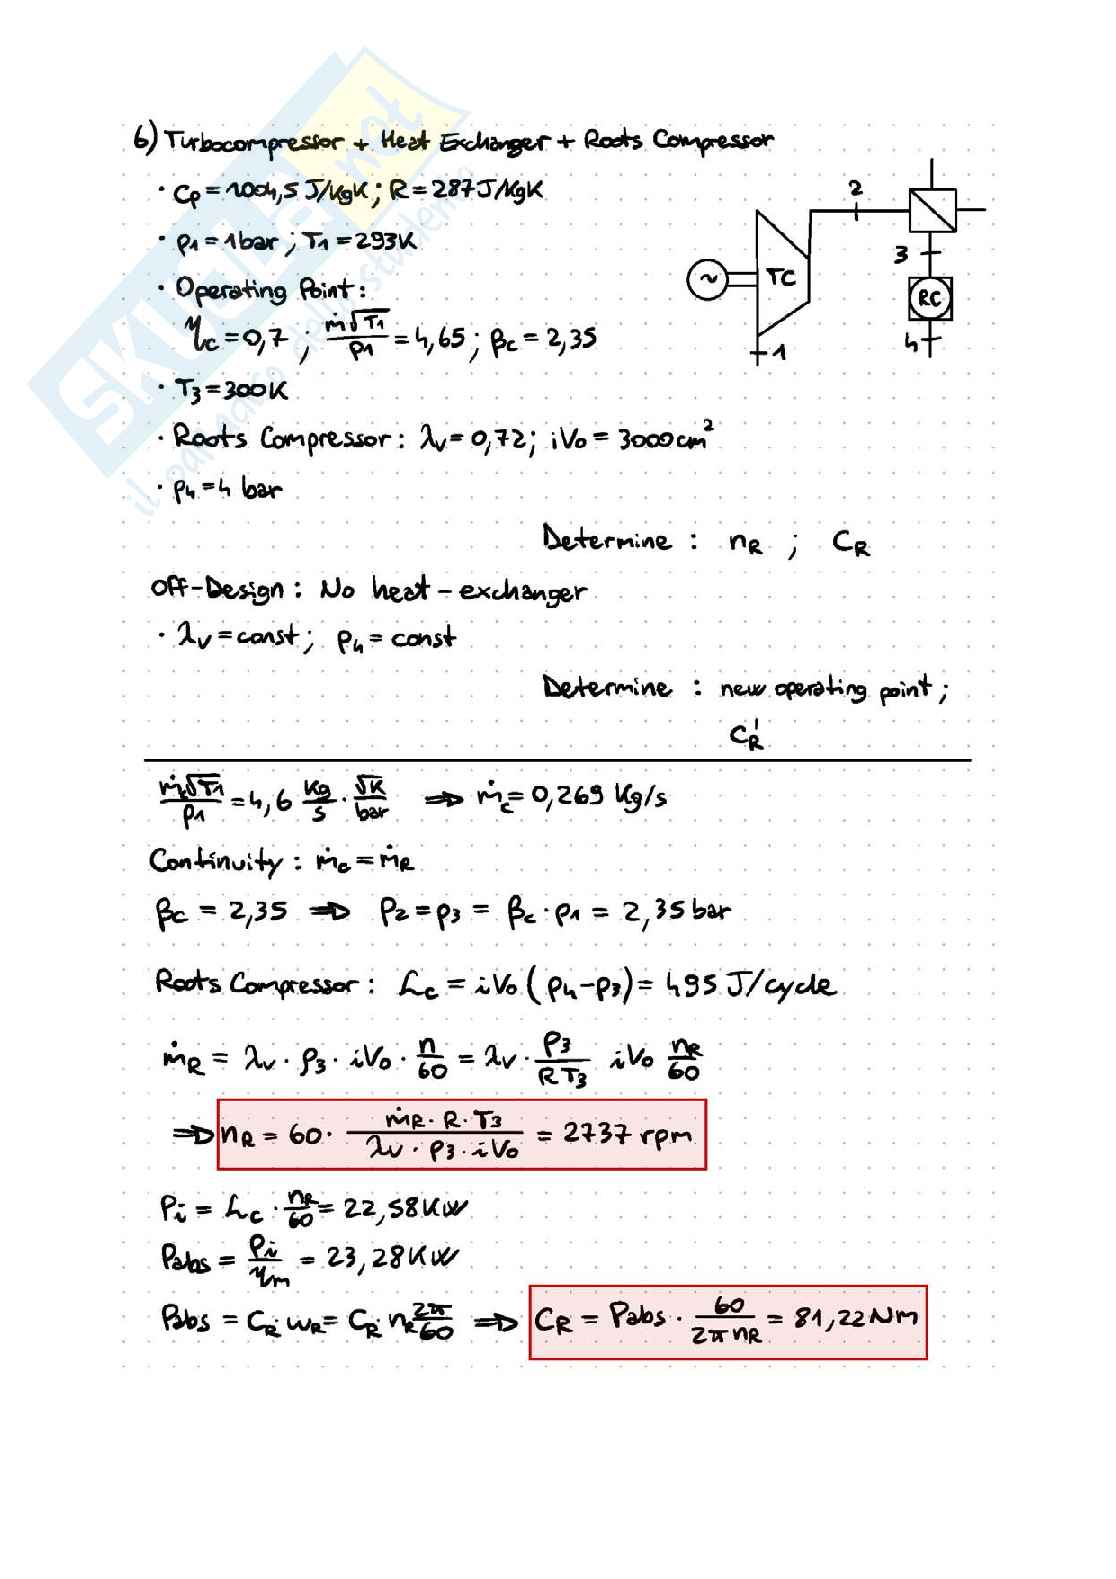 6) Turbocompressor + Heat Exchanger + Roots Compressor
· Cp = 1004,5 J/KgK ; R = 287 J/KgK
· p1 = 1 bar ; T1 = 293K
· Operating Point :
ηc = 0,7 ; ṁ√T1/p1 = 4,65 ; βc = 2,35
· T3 = 300K
· Roots Compressor : λv = 0,72 ; iVo = 3000 cm²
· p4 = 4 bar
TC
2
3
RC
4
1
~
Determine : nR ; CR
Off-Design : No heat-exchanger
· λv = const ; p4 = const
Determine : new operating point ;
CR'
ṁ√T1/p1 = 4,6 Kg/s · √K/bar ⇒ ṁc = 0,269 Kg/s
Continuity : ṁc = ṁR
βc = 2,35 ⇒ p2 = p3 = βc · p1 = 2,35 bar
Roots Compressor : Lc = iVo (p4 - p3) = 495 J/cycle
ṁR = λv · ρ3 · iVo · n/60 = λv · p3/RT3 iVo nR/60
⇒ nR = 60 · ṁR · R · T3/λv · p3 · iVo = 2737 rpm
Pi = Lc · nR/60 = 22,58 KW
Pabs = Pi/ηm = 23,28 KW
Pabs = CR · ωR = CR · nR 2π/60 ⇒ CR = Pabs · 60/2π nR = 81,22 Nm
SKUOLA.not